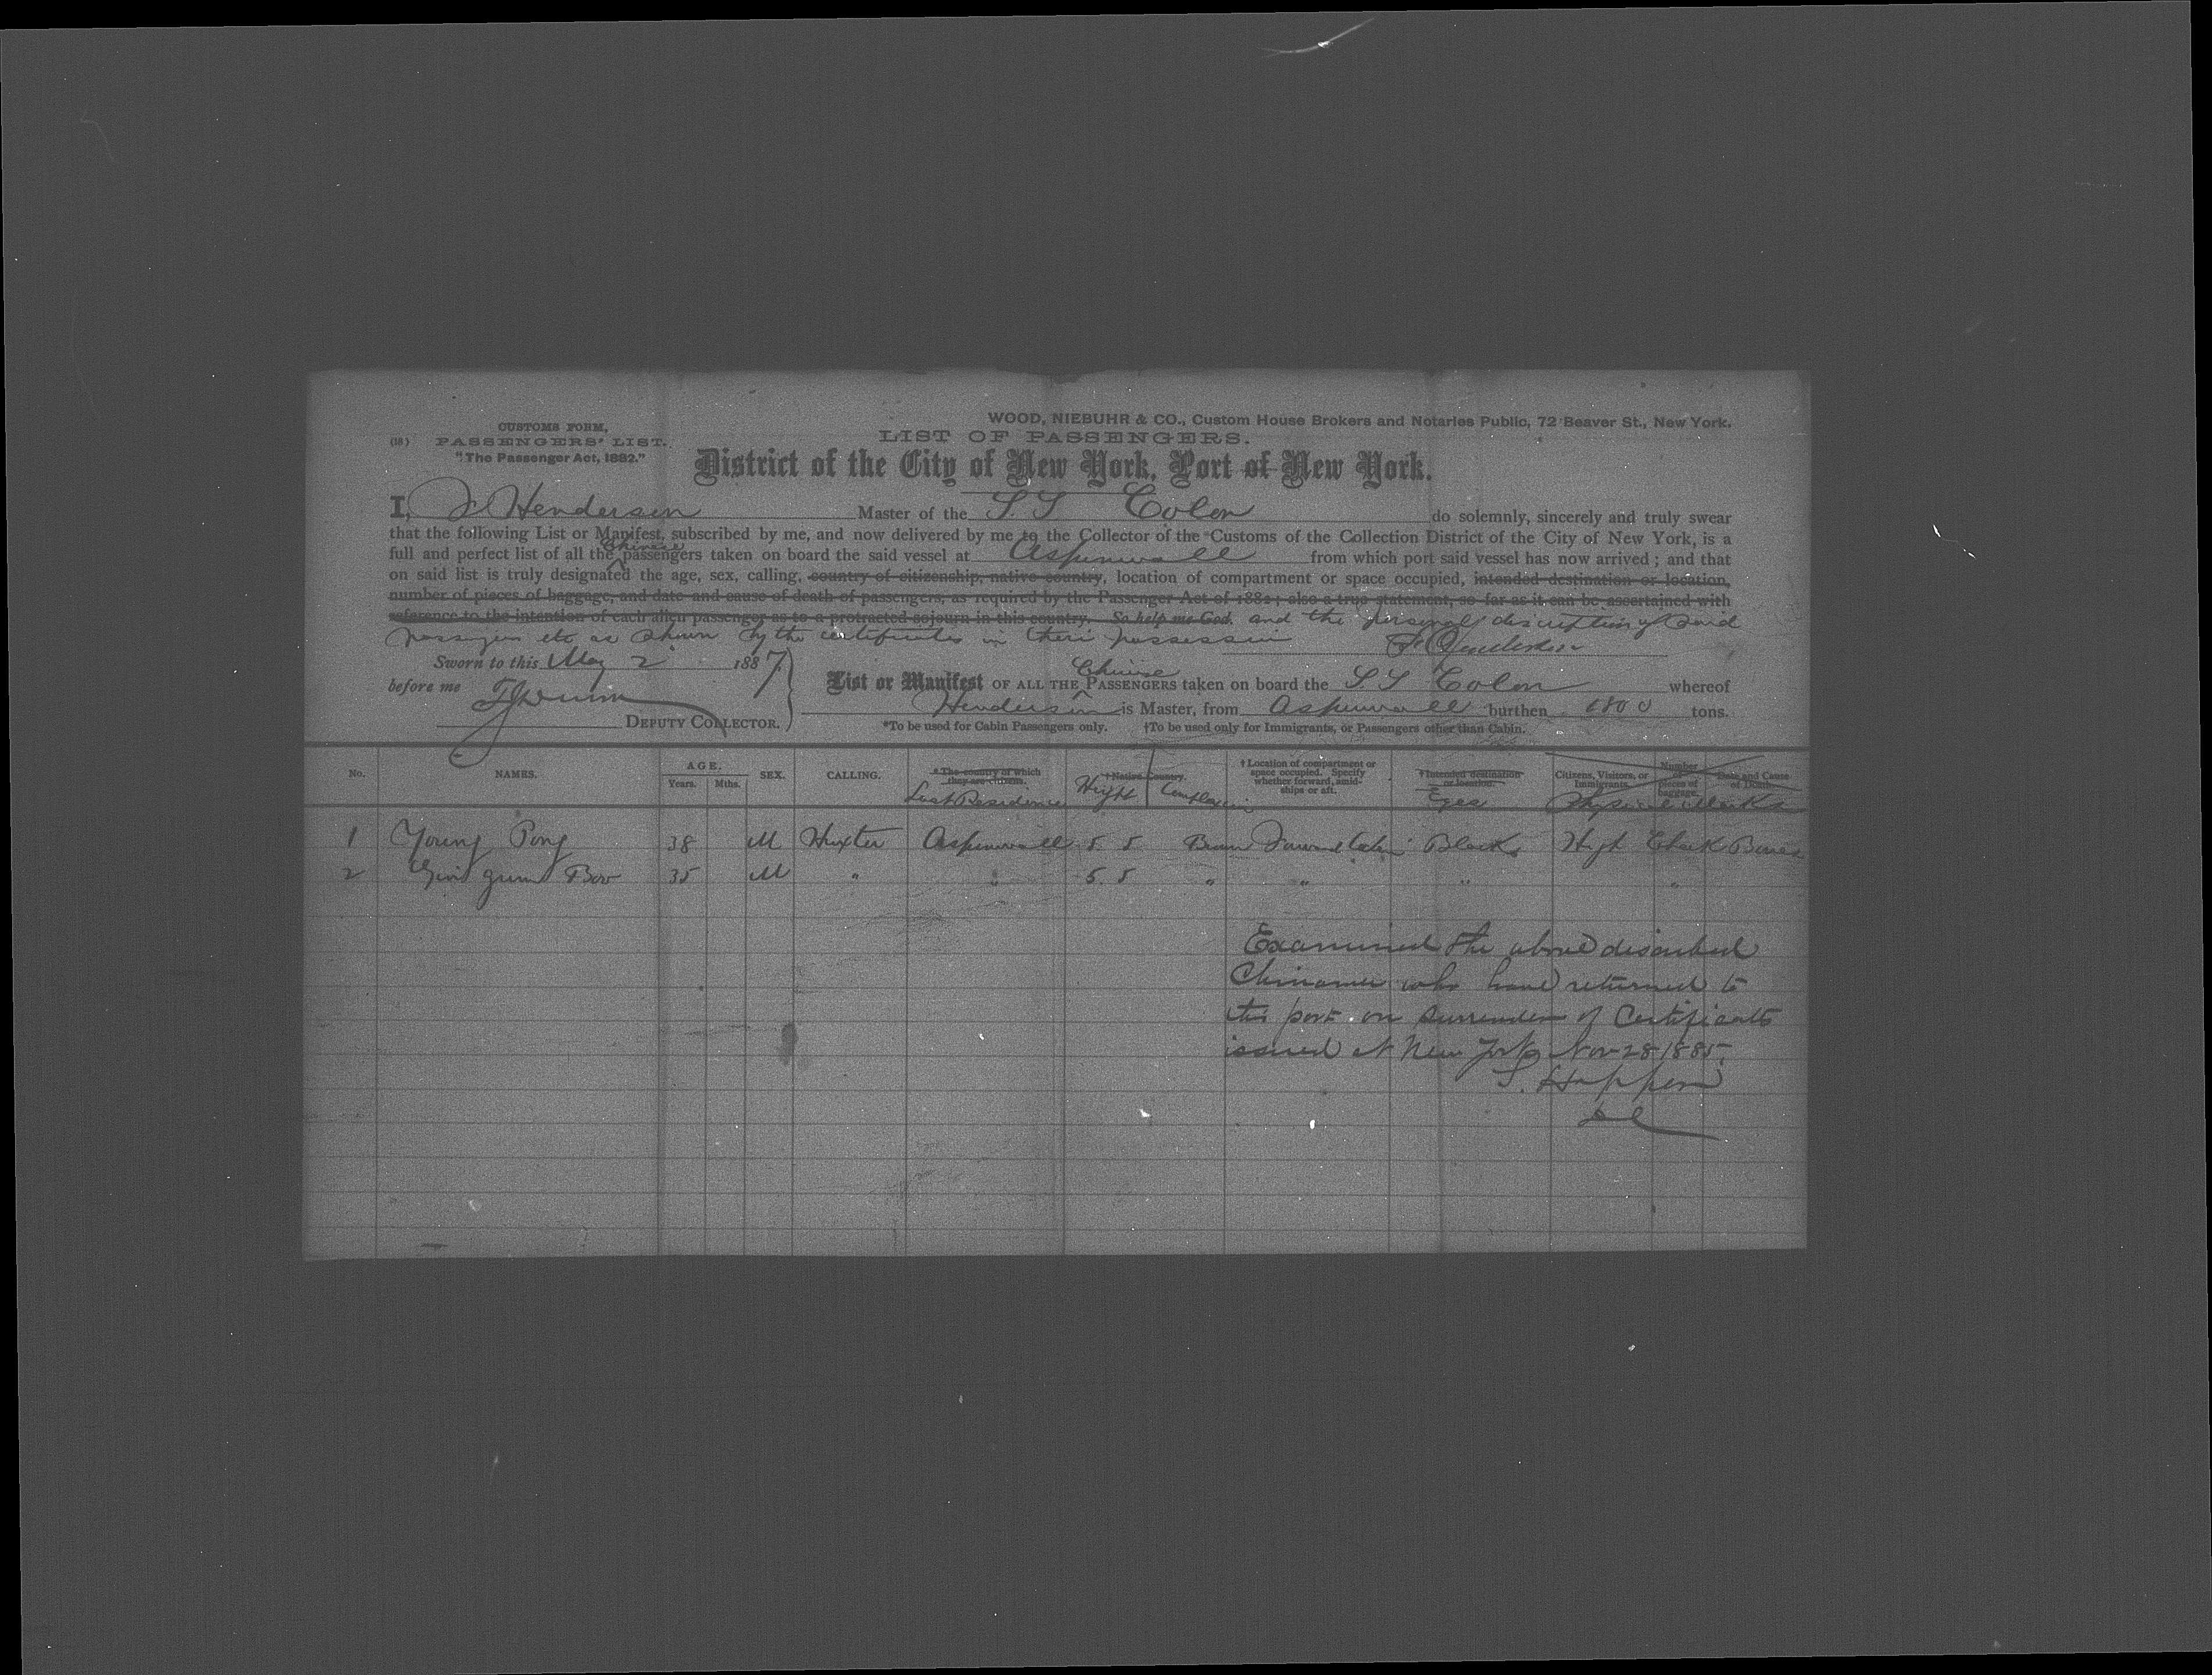 WOOD, NIEBUHR & CO., Custom House Brokers and Notaries Public, 72 Beaver St., New York.
CUSTOMS FORM,
(18) PASSENGERS' LIST.
"The Passenger Act, 1882."
LIST OF PASSENGERS.
District of the City of New York, Port of New York.
I, Henderson Master of the S.S Colon do solemnly, sincerely and truly swear
that the following List or Manifest, subscribed by me, and now delivered by me to the Collector of the Customs of the Collection District of the City of New York, is a
full and perfect list of all the Chinese passengers taken on board the said vessel at Aspinwall from which port said vessel has now arrived; and that
on said list is truly designated the age, sex, calling, country of citizenship, native country, location of compartment or space occupied, intended destination or location,
number of pieces of baggage, and date and cause of death of passengers, as required by the Passenger Act of 1882; also a true statement, so far as it can be ascertained with
reference to the intention of each alien passenger as to a protracted sojourn in this country. So help me God. and the personal discription of said
passengers etc as shown by the certificates in their possession
Sworn to this May 2 1887.
before me
DEPUTY COLLECTOR.
List or Manifest OF ALL THE Chinese PASSENGERS taken on board the S.S Colon whereof
Henderson is Master, from Aspinwall burthen 1800 tons.
*To be used for Cabin Passengers only. †To be used only for Immigrants, or Passengers other than Cabin.
No. NAMES. AGE. Years. Mths. SEX. CALLING. *The country of which they are citizens. Last Residence †Native Country. Hight Complexion †Location of compartment or space occupied. Specify whether forward, amidships or aft. †Intended destination or location. Eyes Citizens, Visitors, or Immigrants. Number of pieces of baggage. Date and Cause of Death. Physical Marks
1 Young Pong 38 M Huxter Aspinwall 5. 5 Black High Cheek Bones
2 Bow 35 M " " 5. 5 " " " "
Examined the above discribed
Chinamen who have returned to
this port on surrender of Certificate
issued at New York Nov 28 1885.